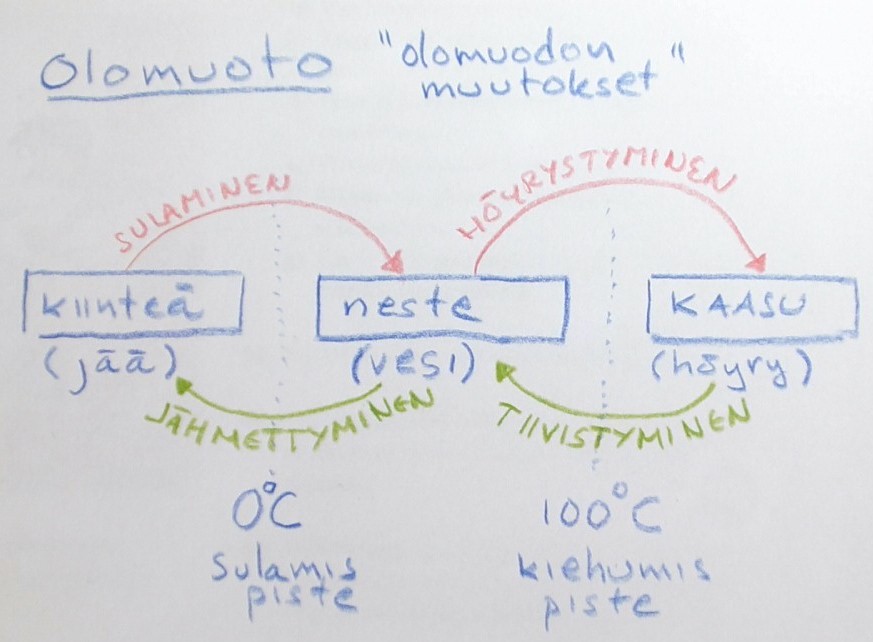 Olomuoto
"olomuodon
muutokset"
SULAMINEN
HÖYRYSTYMINEN
kiinteä
neste
KAASU
(jää)
(vesi)
(höyry)
JÄHMETTYMINEN
TIIVISTYMINEN
0°C
100°C
Sulamis
piste
kiehumis
piste